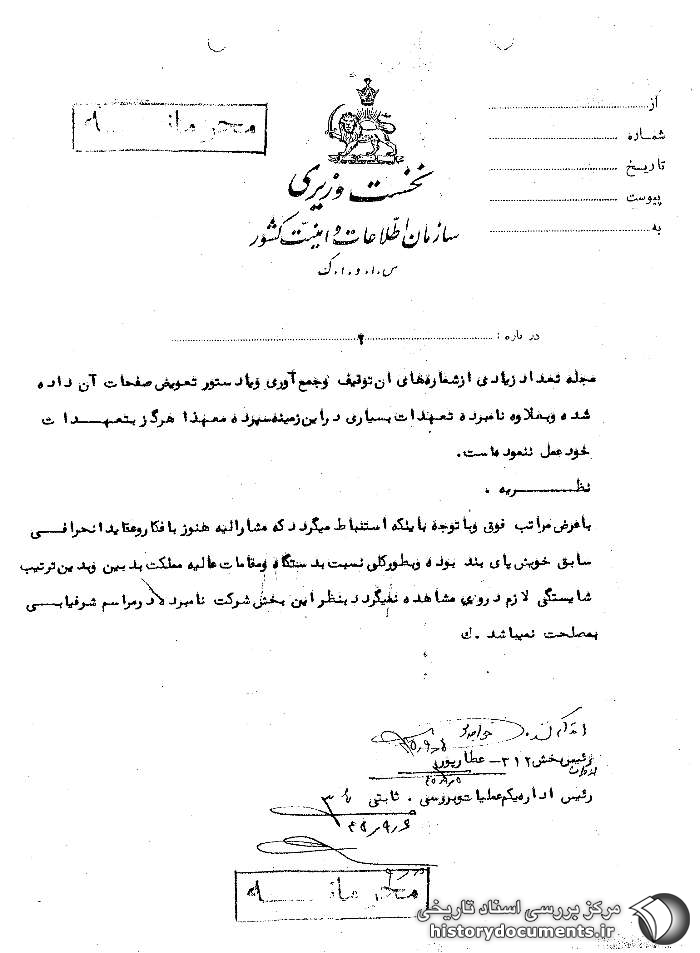 محرمانه
از
شماره
تاریخ
پیوست
به
نخست وزیری
سازمان اطلاعات و امنیت کشور
س.ا.و.ا.ک
در باره : ۲
مجله تعداد زیادی از شماره‌های آن توقیف وجمع آوری ویا دستور تعویض صفحات آن داده
شده وبعلاوه نامبرده تعهدات بسیاری در این زمینه سپرده معهذا هرگز بتعهدات
خود عمل ننموده است.
نظریه .
با عرض مراتب فوق وبا توجه باینکه استنباط میگردد که مشارالیه هنوز بافکار وعقاید انحرافی
سابق خویش پای بند بوده وبطور کلی نسبت بدستگاه ومقامات عالیه مملکت بدبین وبدین ترتیب
شایستگی لازم در وی مشاهده نمیگردد بنظر این بخش شرکت نامبرده در مراسم شرفیابی
بمصلحت نمیباشد .ك
اقدام کننده.
رئیس بخش ۳۱۲- عطارپور
رئیس اداره یکم عملیات وبررسی . ثابتی
۴۵/۹/۶
محرمانه
مرکز بررسی اسناد تاریخی
historydocuments.ir